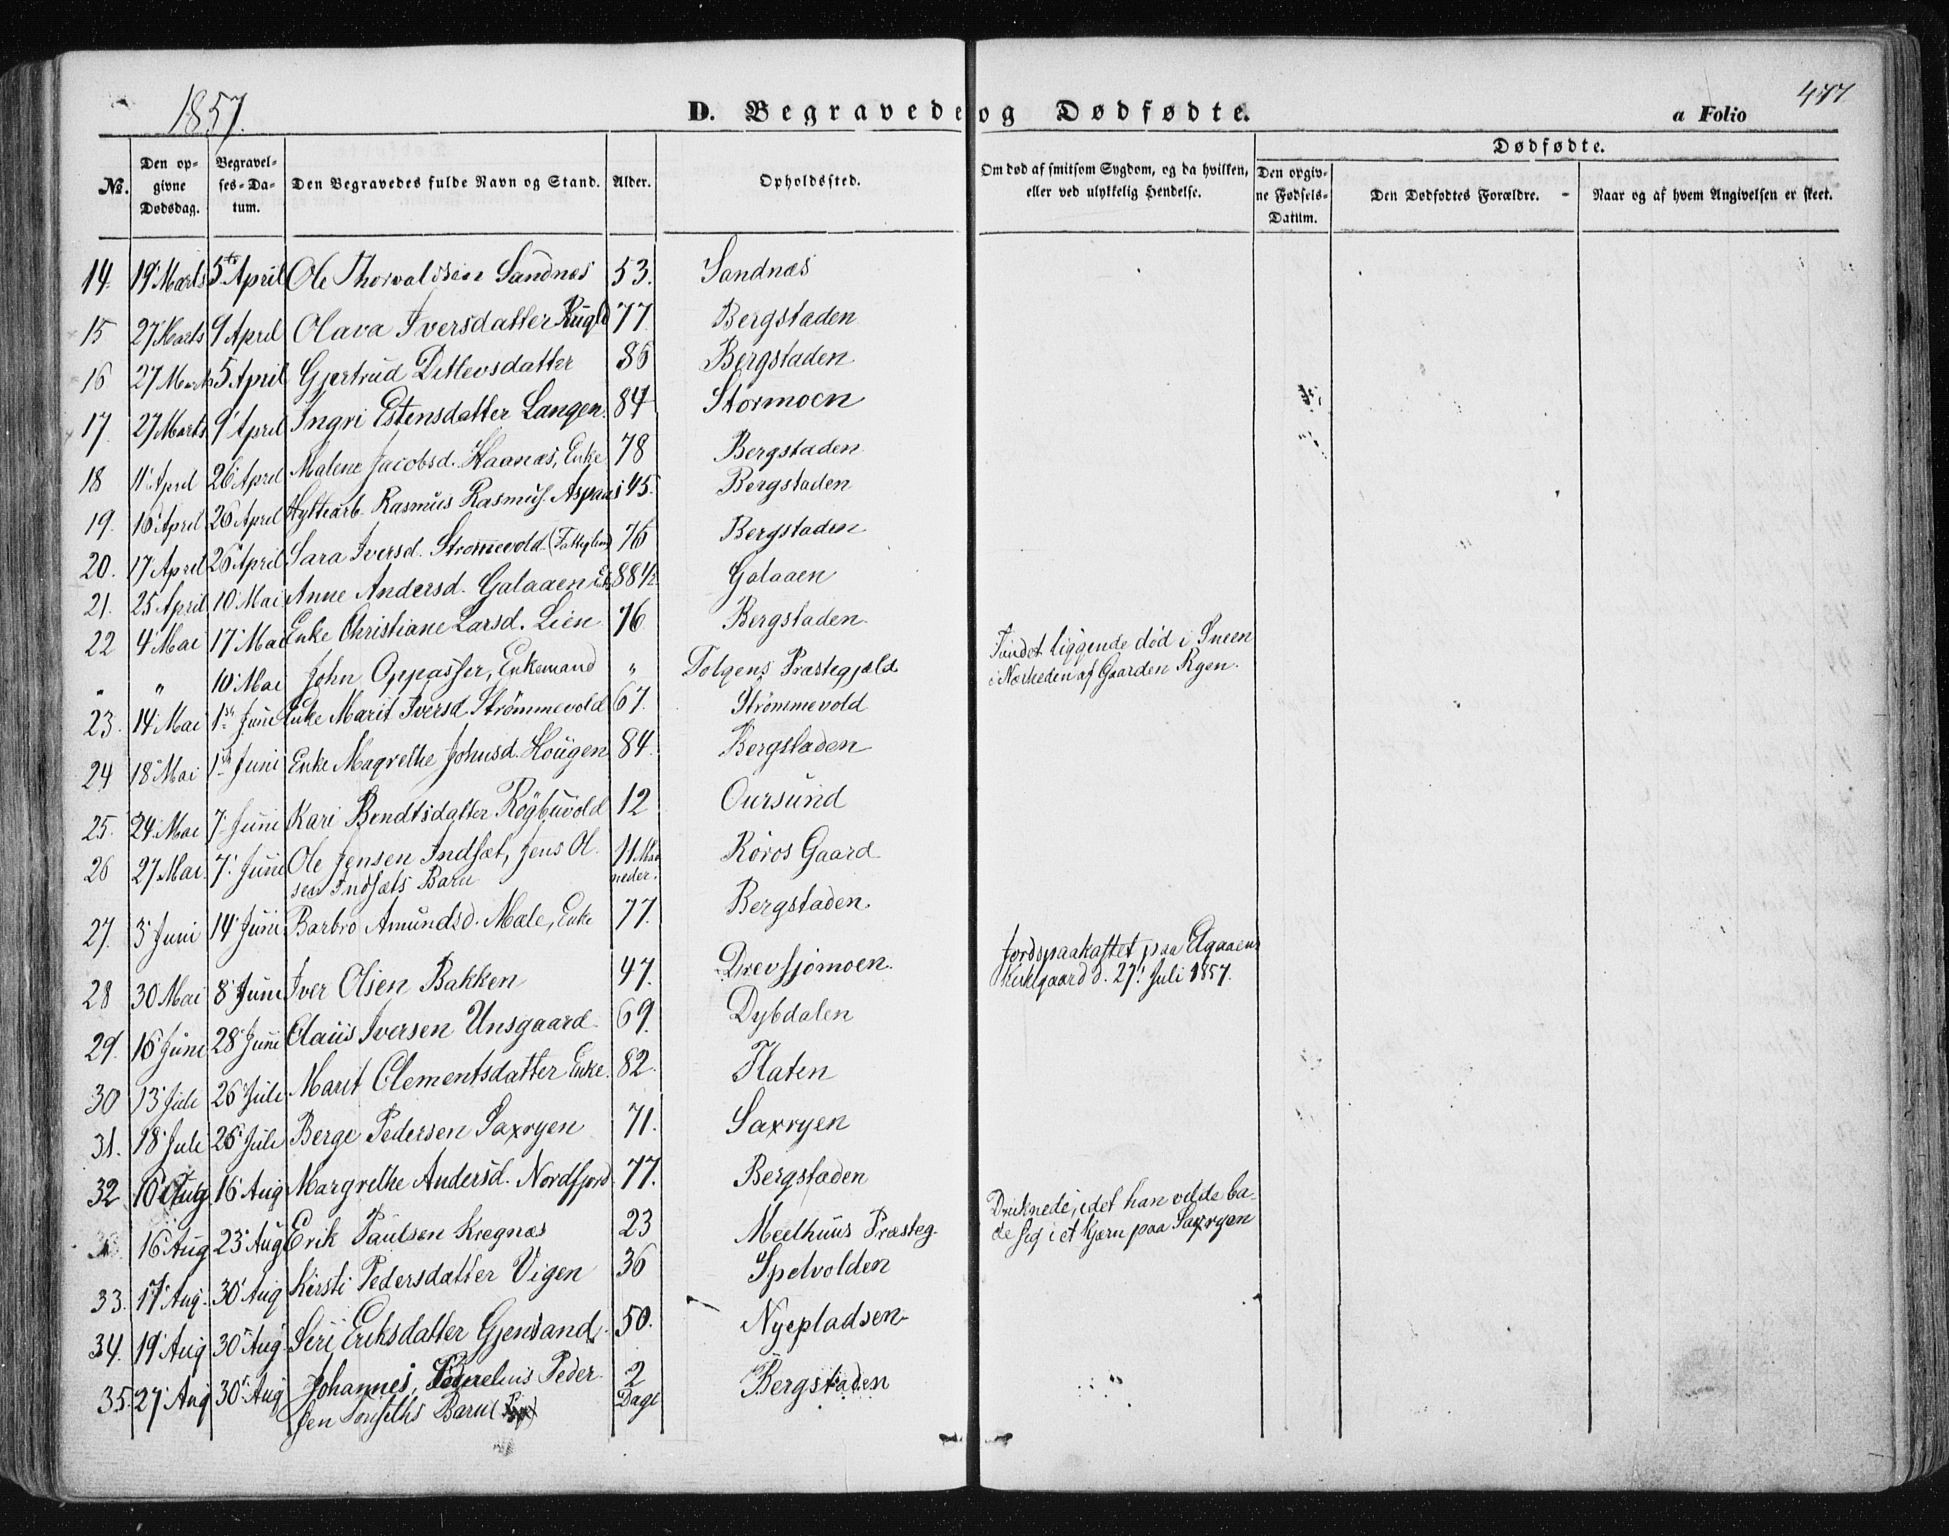 1857.
D. Begravede og Dødfødte.
a Folio
477
No.
Den opgivne Dødsdag.
Begravelses-Datum.
Den Begravedes fulde Navn og Stand.
Alder.
Opholdssted.
Om død af smitsom Sygdom, og da hvilken, eller ved ulykkelig Hendelse.
Dødfødte.
Den opgivne Fødsels-Datum.
Den Dødfødtes Forældre.
Naar og af hvem Angivelsen er skeet.
14. 19 Marts 5te April Ole Thorvaldsen Sandnes 53. Sandnæs
15 27 Marts 9 April Olava Iversdatter Rugld 77 Bergstaden
16 27 Marts 5 April Gjertrud Ditlevsdatter 86 Bergstaden
17. 27 Marts 9 April Ingri Estensdatter Langen. 84 Stormoen
18 11 April 26 April Malene Jacobsd. Haanæs, Enke 78 Bergstaden
19. 16 April 26 April Hyttearb. Rasmus Rasmus. Aspaas 45. Bergstaden
20. 17 April 26 April Sara Iversd. Strømmevold (Fattiglem) 76 Bergstaden
21. 25 April 10 Mai Anne Andersd. Galaaen Ek. 88 1/2 Galaaen
22 4 Mai 17 Mai Enke Christiane Larsd. Lien 76 Bergstaden
" " 10 Mai John Oppasser, Enkemand " Tolgens Præstegjæld Fundet liggende død i Sneen
i Nærheden af Gaarden Ryen.
23. 14 Mai 1ste Juni Enke Marit Iversd. Strømmevold 67. Strømmevold
24 18 Mai 1ste Juni Enke Magrethe Johnsd. Hougen 84. Bergstaden
25. 24 Mai 7 Juni Kari Bendtsdatter Røgbuvold 12 Oursund
26 27 Mai 7 Juni Ole Jensen Indset, Jens Ol- 11 Maa- Røros Gaard
sen Indsets Barn neder.
27. 3 Juni 14 Juni Barbro Amundsd. Male, Enke 77. Bergstaden.
28 30 Mai 8 Juni Iver Olsen Bakken 47. Drevsjømoen. Jordspaakastet paa Elgaaens
Kirkegaard d. 27 Juli 1857.
29. 16 Juni 28 Juni Claus Iversen Unsgaard 69. Dybdalen
30 13 Juli 26 Juli Marit Clementsdatter Enke. 82. Flaten
31. 18 Juli 26 Juli Berge Pedersen Saxryen 71. Saxryen
32 10 Aug 16 Aug Margrethe Andersd. Nordfjord 77. Bergstaden
16 Aug 23 Aug Erik Paulsen Kregnæs 23 Meelhuus Præsteg. Druknede, idet han vilde ba-
de sig i et Kjærn paa Saxryen
33. 17 Aug. 30 Aug Kirsti Pedersdatter Vigen 36 Spelvolden
34. 19 Aug 30 Aug Siri Eriksdatter Gjensand 50. Nyepladsen
35. 27 Aug 30 Aug Johannes, Peder- 2 Bergstaden
sen Tonseths Barn Dage